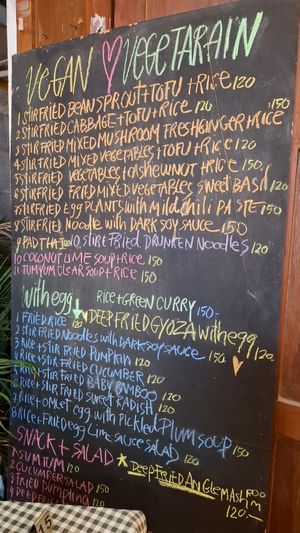 VEGAN VEGETARAIN
1 STIRFRIED BEAN SPROUT+TOFU+RICE 120
2 STIRFRIED CABBAGE+TOFU+RICE 120 150
3 STIR FRIED MIXED MUSHROOM FRESHGINGER+RICE
4 STIR FRIED MIXED VEGETABLES+TOFU+RICE 120
5 STIRFRIED VEGETABLES+CASHEWNOT+RICE 150.
6 STIRFRIED FRIED MIXED VEGETABLES SWEET BASIL 120
7 STIRFRIED EGG PLANTS with Mild chili PASTE 150
8 STIRFRIED Noodle with DARK SOY SAUCE 150
9 PAD THAI 10, STIR FRIED DRUNKEN NOODLES 120
10 COCONUT LIME SOUP+RICE 150
11 TUMYUM CLEAR SOUP+RICE 150
withegg RICE+GREEN CURRY 150-
1 FRIED RICE 120 DEEPFRIED GYOZA withegg 120.
2 STIR FRIED NOODLES with DARK SOY SAUCE 150
3 RICE+STIR FRIED PUMPKIN 120
4 RICE+STIR FRIED CUCUMBER 120
5 RICE+STIR FRIED BABY BAMBOO 120
6 RICE+STIR FRIED SWEET RADISH 120
7 RICE+OMLET EGG with PICKLED PLUM SOUP 150
8 RICE+FRIED EGG LIME SAUCE SALAD 120
SNACK+SALAD
1 SUMTUM 120 DEEPFRIED ANGLE MASH
2 CUCUMBER SALAD 150 120.-
3 FRIED PUMPLING 120
4 DEEP
15